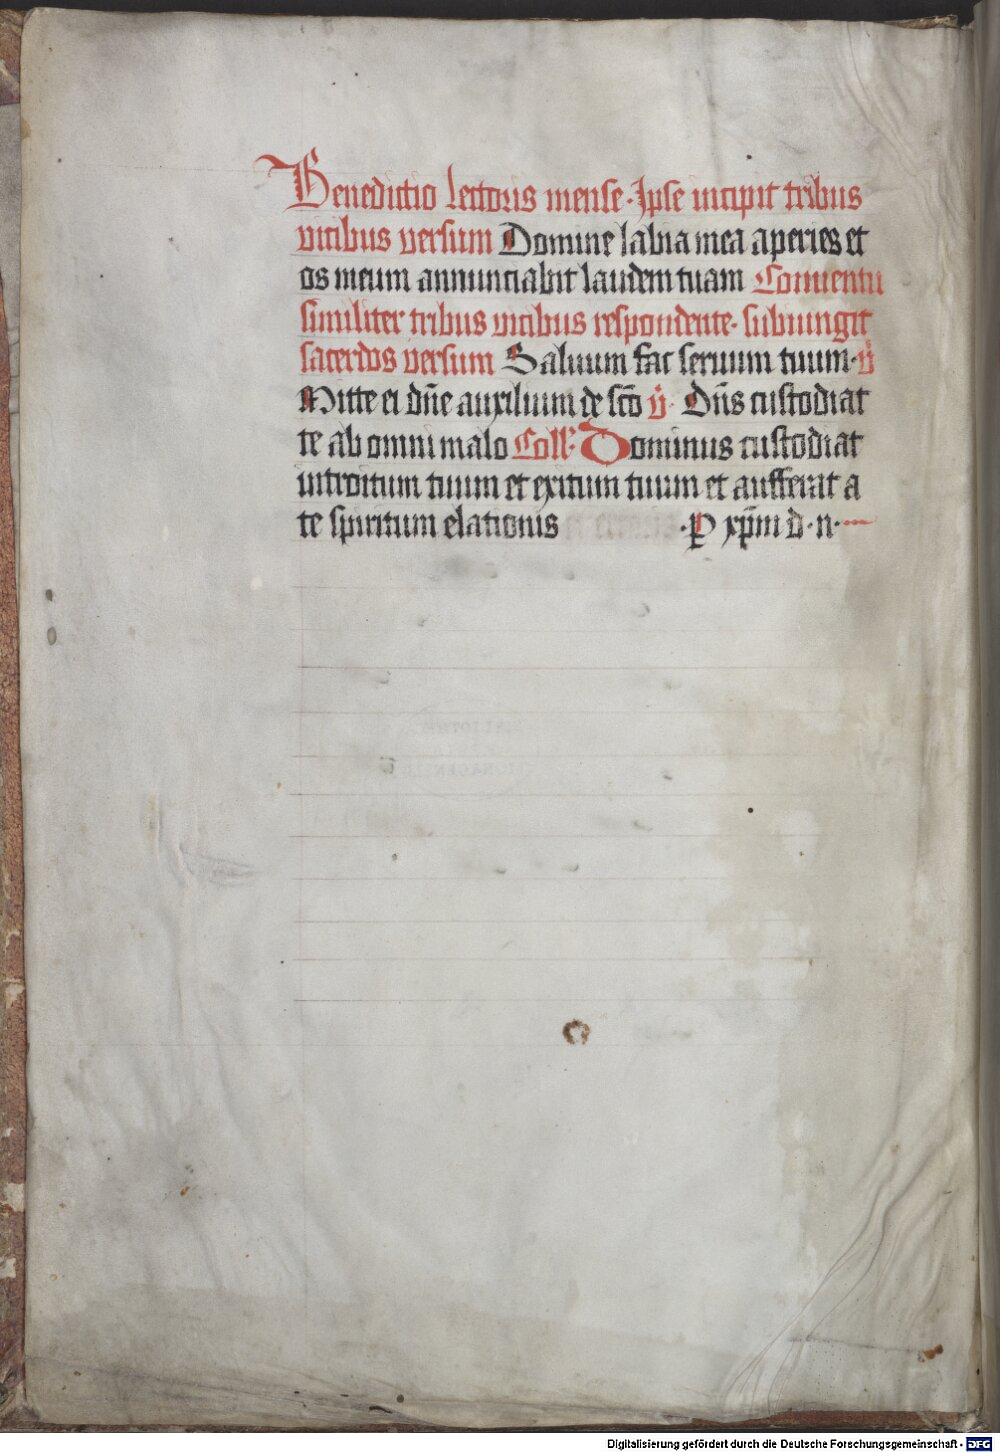 Benedictio lectoris mense · Ipse incipit tribus
vicibus versum Domine labia mea aperies et
os meum annunciabit laudem tuam Conuentu
similiter tribus vicibus respondente · subiungit
sacerdos versum Saluum fac seruum tuum · v̄
Mitte ei dn̄e auxilium de sc̄o v̄ · Dn̄s custodiat
te ab omni malo Coll̄· Dominus custodiat
introitum tuum et exitum tuum et aufferat a
te spiritum elationis · ꝑ xp̄m d · n ·
Digitalisierung gefördert durch die Deutsche Forschungsgemeinschaft - DFG